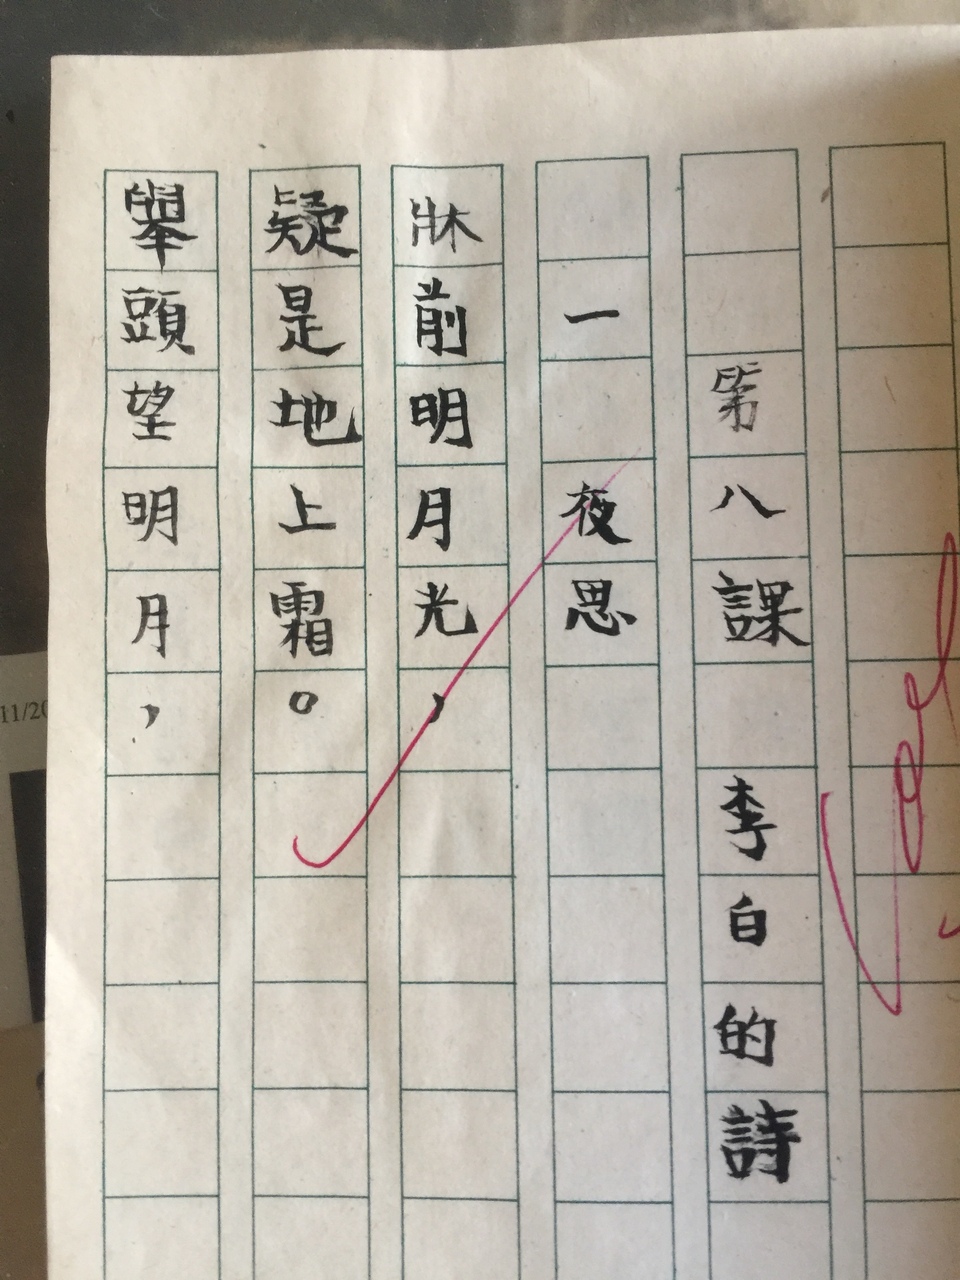 第八課 李白的詩
一 夜思
牀前明月光，
疑是地上霜。
舉頭望明月，
11/20